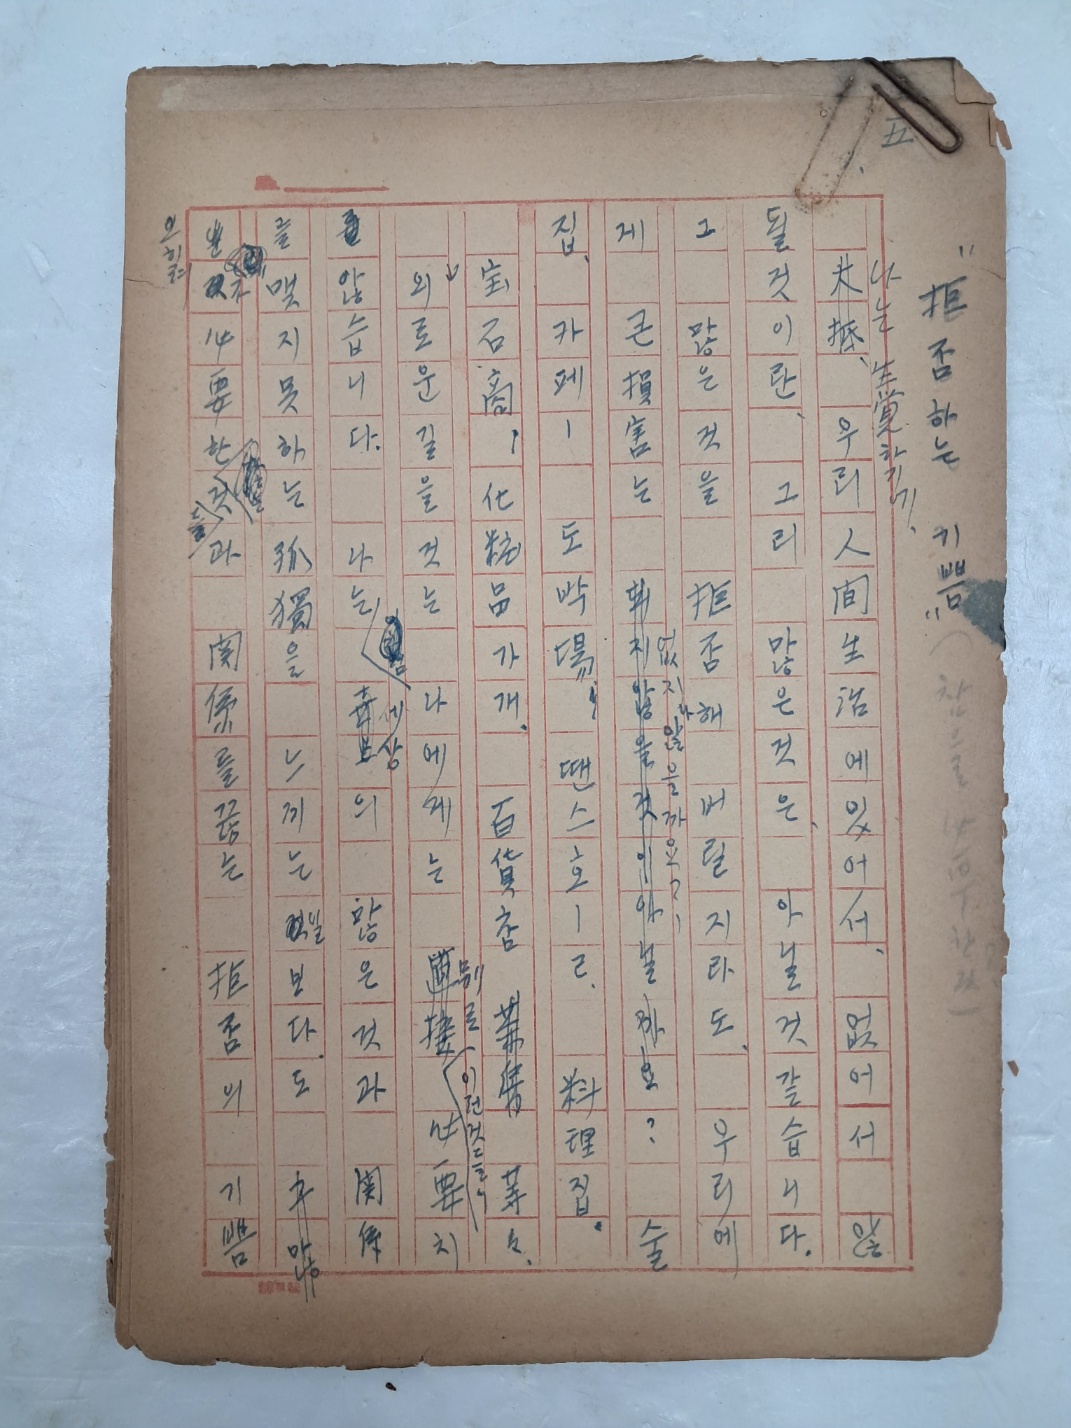 五
"拒否하는 기쁨"
나는 生覺하기를,
大抵, 우리 人間生活에 있어서, 없어서 않
될 것이란, 그리 많은 것은, 아닐 것 같습니다.
그 많은 것을 拒否해 버릴지라도, 우리에
없지나 않을까요?
게 큰 損害는 훠지 않을 것이 아닐까요? 술
집, 카페ー 도박場, 땐스호ー르, 料理집.
宝石商, 化粧品가개, 百貨店 等等々.
외로운 길을 것는 나에게는 直接 必要치
別로 이런것들이
않습니다. 나는 세상의 많은 것과 関係
를 맺지 못하는 孤獨을 느끼는 보다.도 많
必要한 것들과 関係를 끊는 拒否의 기쁨
오히려